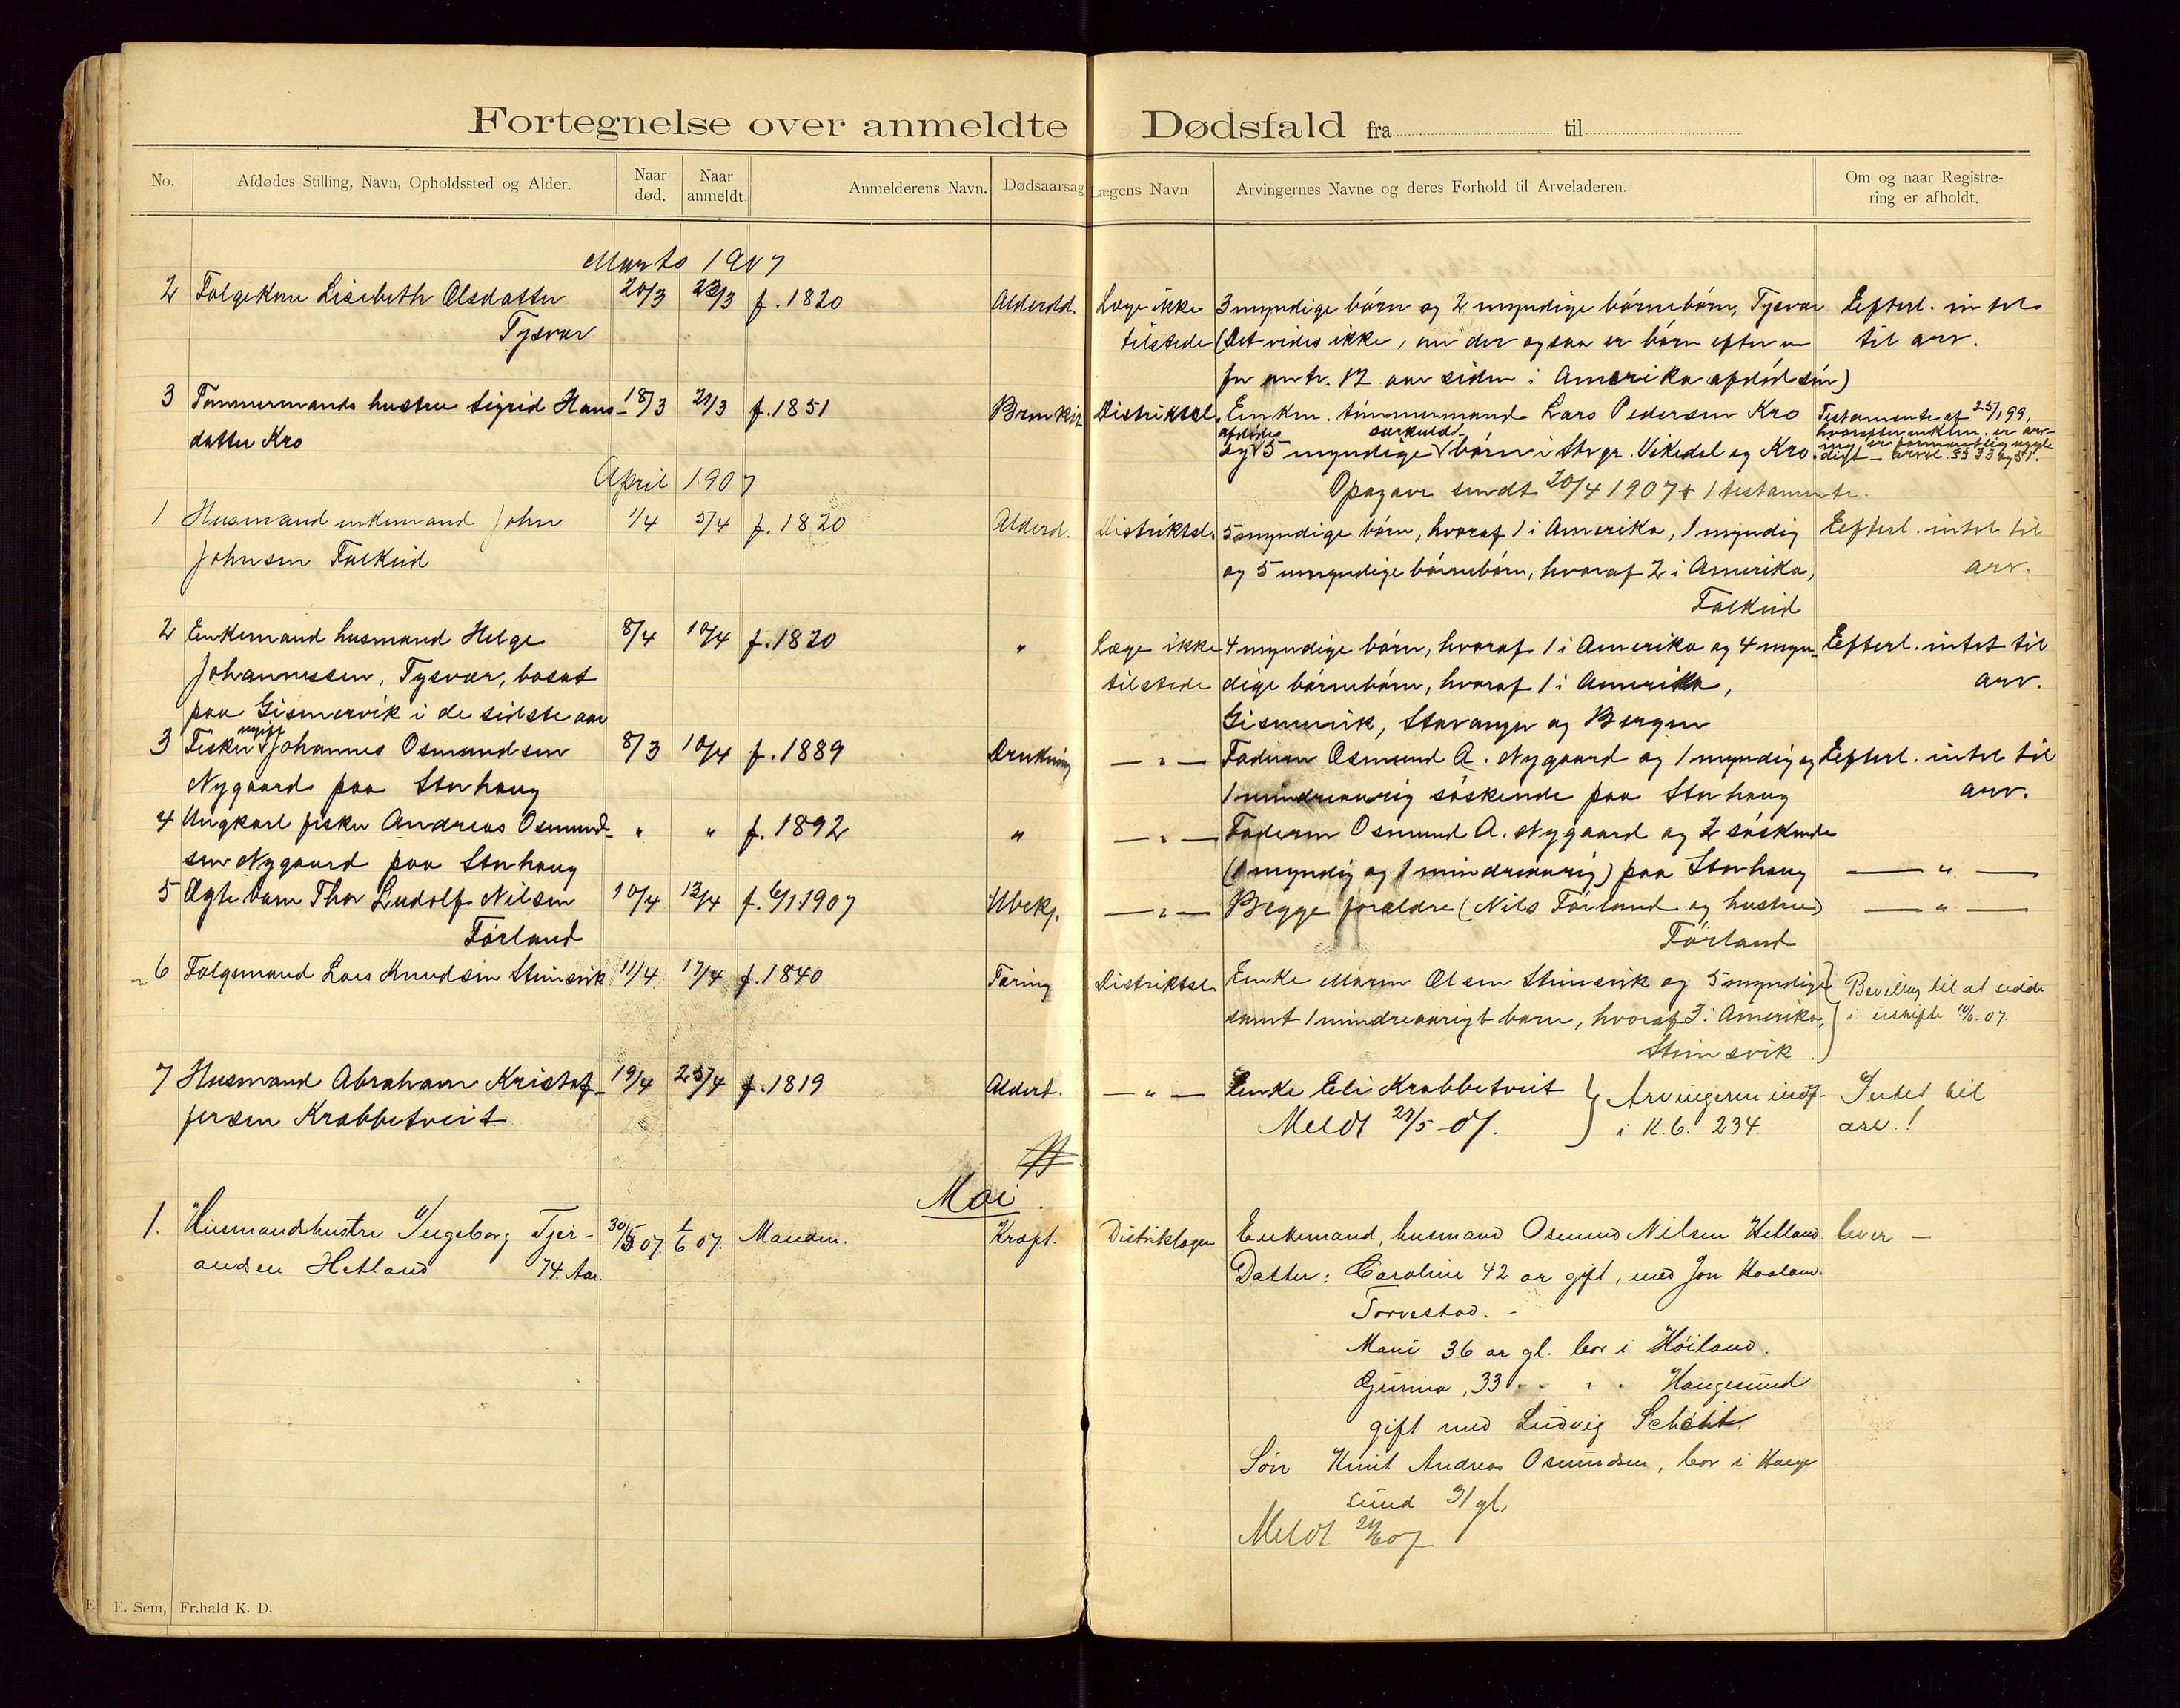 Fortegnelse over anmeldte Dødsfald fra til
No. Afdødes Stilling, Navn, Opholdssted og Alder. Naar død. Naar anmeldt. Anmelderens Navn. Dødsaarsag Lægens Navn Arvingernes Navne og deres Forhold til Arveladeren. Om og naar Registre-
ring er afholdt.
Marts 1907
2 Folgekone Lisebeth Olsdatter 20/3 22/3 f. 1820 Alderdd. Læge ikke 3 myndige börn og 2 myndige börnebörn, Tysvær Efterl. intet
Tysvær tilstede (Det vides ikke, om der ogsaa er börn efter en til arv.
for omtr. 12 aar siden i Amerika afdöd sön)
3 Tømmermands hustru Sigrid Hans- 18/3 21/3 f. 1851 Distriktsl. Enkem. tömmermand Lars Pedersen Kro Testamente af 25/1 99,
datter Kro afdödes særkuld hvorefter enkem. er arv-
og 5 myndige börn i Vikedal og Kro.
April 1907
Opgave sendt 20/4 1907 + 1 testamente.
1 Husmand enkemand John 1/4 5/4 f. 1820 Alderd. Distriktsl. 5 myndige börn, hvoraf 1 i Amerika, 1 myndig Efterl. intet til
Johnsen Falkeid og 5 umyndige börnebörn, hvoraf 2 i Amerika, arv.
Falkeid
2 Enkemand husmand Helge 8/4 10/4 f. 1820 " Læge ikke 4 myndige börn, hvoraf 1 i Amerika og 4 myn- Efterl. intet til
Johannessen, Tysvær, bosat tilstede dige börnebörn, hvoraf 1 i Amerika, arv.
paa Gismervik i de sidste aar Gismervik, Stavanger og Bergen
3 Fisker ugift Johannes Osmundsen 8/3 10/4 f. 1889 Drukning — " — Faderen Osmund A. Nygaard og 1 myndig og Efterl. intet til
Nygaard paa Storhaug 1 mindreaarig söskende paa Storhaug arv.
4 Ungkarl fisker Andreas Osmund- " " f. 1892 " — " — Faderen Osmund A. Nygaard og 2 söskende
sen Nygaard paa Storhaug (1 myndig og 1 mindreaarig) paa Storhaug — " —
5 Ægte barn Thor Ludolf Nilsen 10/4 13/4 f. 6/1 1907 Ubekj. — " — Begge forældre (Nils Förland og hustru) — " —
Förland Förland
6 Folgemand Lars Knudsen Stensvik 11/4 17/4 f. 1840 Tæring Distriktsl. Enke Maren Olsen Stensvik og 5 myndige Bevilling til at sidde
samt 1 mindreaarigt barn, hvoraf 3 i Amerika, i uskifte 10/6-07.
Stensvik
7 Husmand Abraham Kristof- 19/4 25/4 f. 1819 Alderd. — " — Enke Eli Krabbetveit Arvingerne indf. Intet til
fersen Krabbetveit Meldt 27/5-07. i K.b. 234. arv.!
Mai
1. Husmandhustru Ingeborg Tjer- 30/5 07. 1/6 07. Manden. Kræft. Distriktlægen Enkemand, husmand Osmund Nilsen Hetland. lever —
andsen Hetland 74 Aar. Datter: Caroline 42 ar gift, med Jon Haaland.
Torvestad. -
Mari 36 ar gl. bor i Höiland.
Gurina, 33 " " " " Haugesund
gift med Ludvig
Sön Knut Andreas Osmundsen, bor i Hauge
sund 31 gl.
Meldt 21/6 07
E. Sem, Fr.hald K. D.